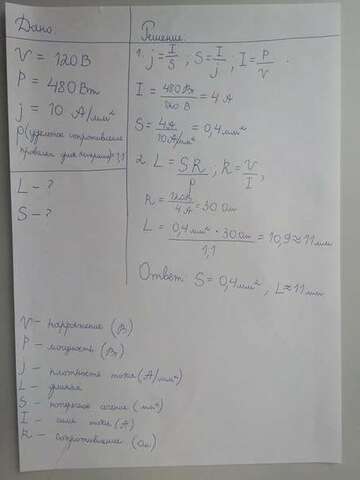 Дано:
V = 120 В
P = 480 Вт
j = 10 А/мм²
ρ (удельное сопротивление
проволки для спирали) = 1,1
L – ?
S – ?
Решение:
1. j = I/S ; S = I/j ; I = P/V .
I = 480 Вт/120 В = 4 А
S = 4А/10 А/мм² = 0,4 мм²
2. L = SR/ρ ; R = V/I ,
R = 120В/4 А = 30 Ом
L = 0,4 мм² · 30 Ом/1,1 = 10,9 ≈ 11 мм
Ответ: S = 0,4 мм² , L ≈ 11 мм
V – напряжение (В)
P – мощность (Вт)
j – плотность тока (А/мм²)
L – длина
S – сечение (мм²)
I – сила тока (А)
R – сопротивление (Ом)